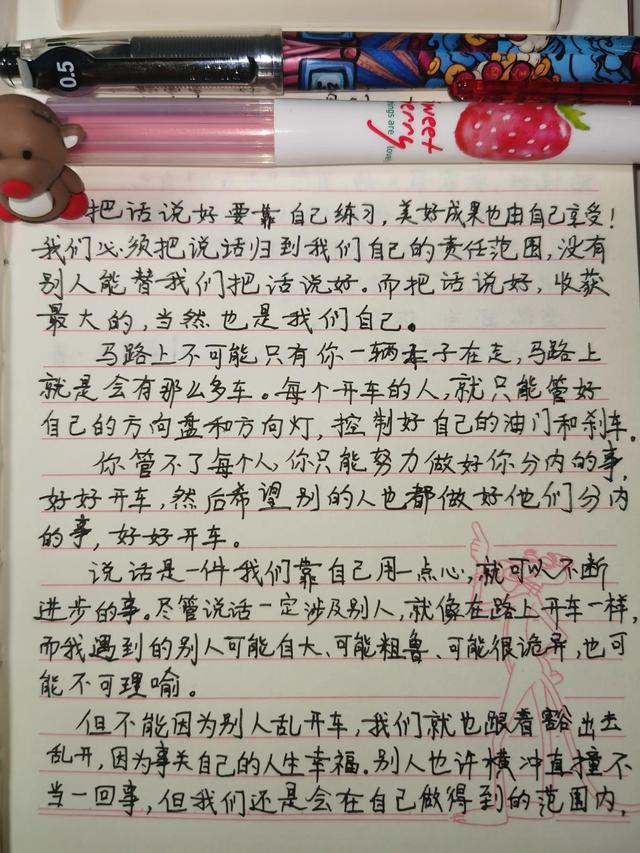 0.5
Sweet
erry
ngs are love
把话说好要靠自己练习，美好成果也由自己享受！
我们必须把说话归到我们自己的责任范围，没有
别人能替我们把话说好。而把话说好，收获
最大的，当然也是我们自己。
马路上不可能只有你一辆车子在走，马路上
就是会有那么多车。每个开车的人，就只能管好
自己的方向盘和方向灯，控制好自己的油门和刹车。
你管不了每个人，你只能努力做好你分内的事，
好好开车，然后希望别的人也都做好他们分内
的事，好好开车。
说话是一件我们靠自己用一点心，就可以不断
进步的事。尽管说话一定涉及别人，就像在路上开车一样，
而我遇到的别人可能自大、可能粗鲁、可能很诡异，也可
能不可理喻。
但不能因为别人乱开车，我们就也跟着豁出去
乱开，因为事关自己的人生幸福。别人也许横冲直撞不
当一回事，但我们还是会在自己做得到的范围内，